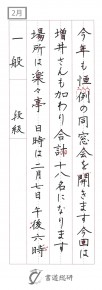 2月
今年も恒例の同窓会を開きます今回は
増井さんも加わり合計十八名になります
場所は楽々亭 日時は二月七日午後六時
一般 段級
書道総研